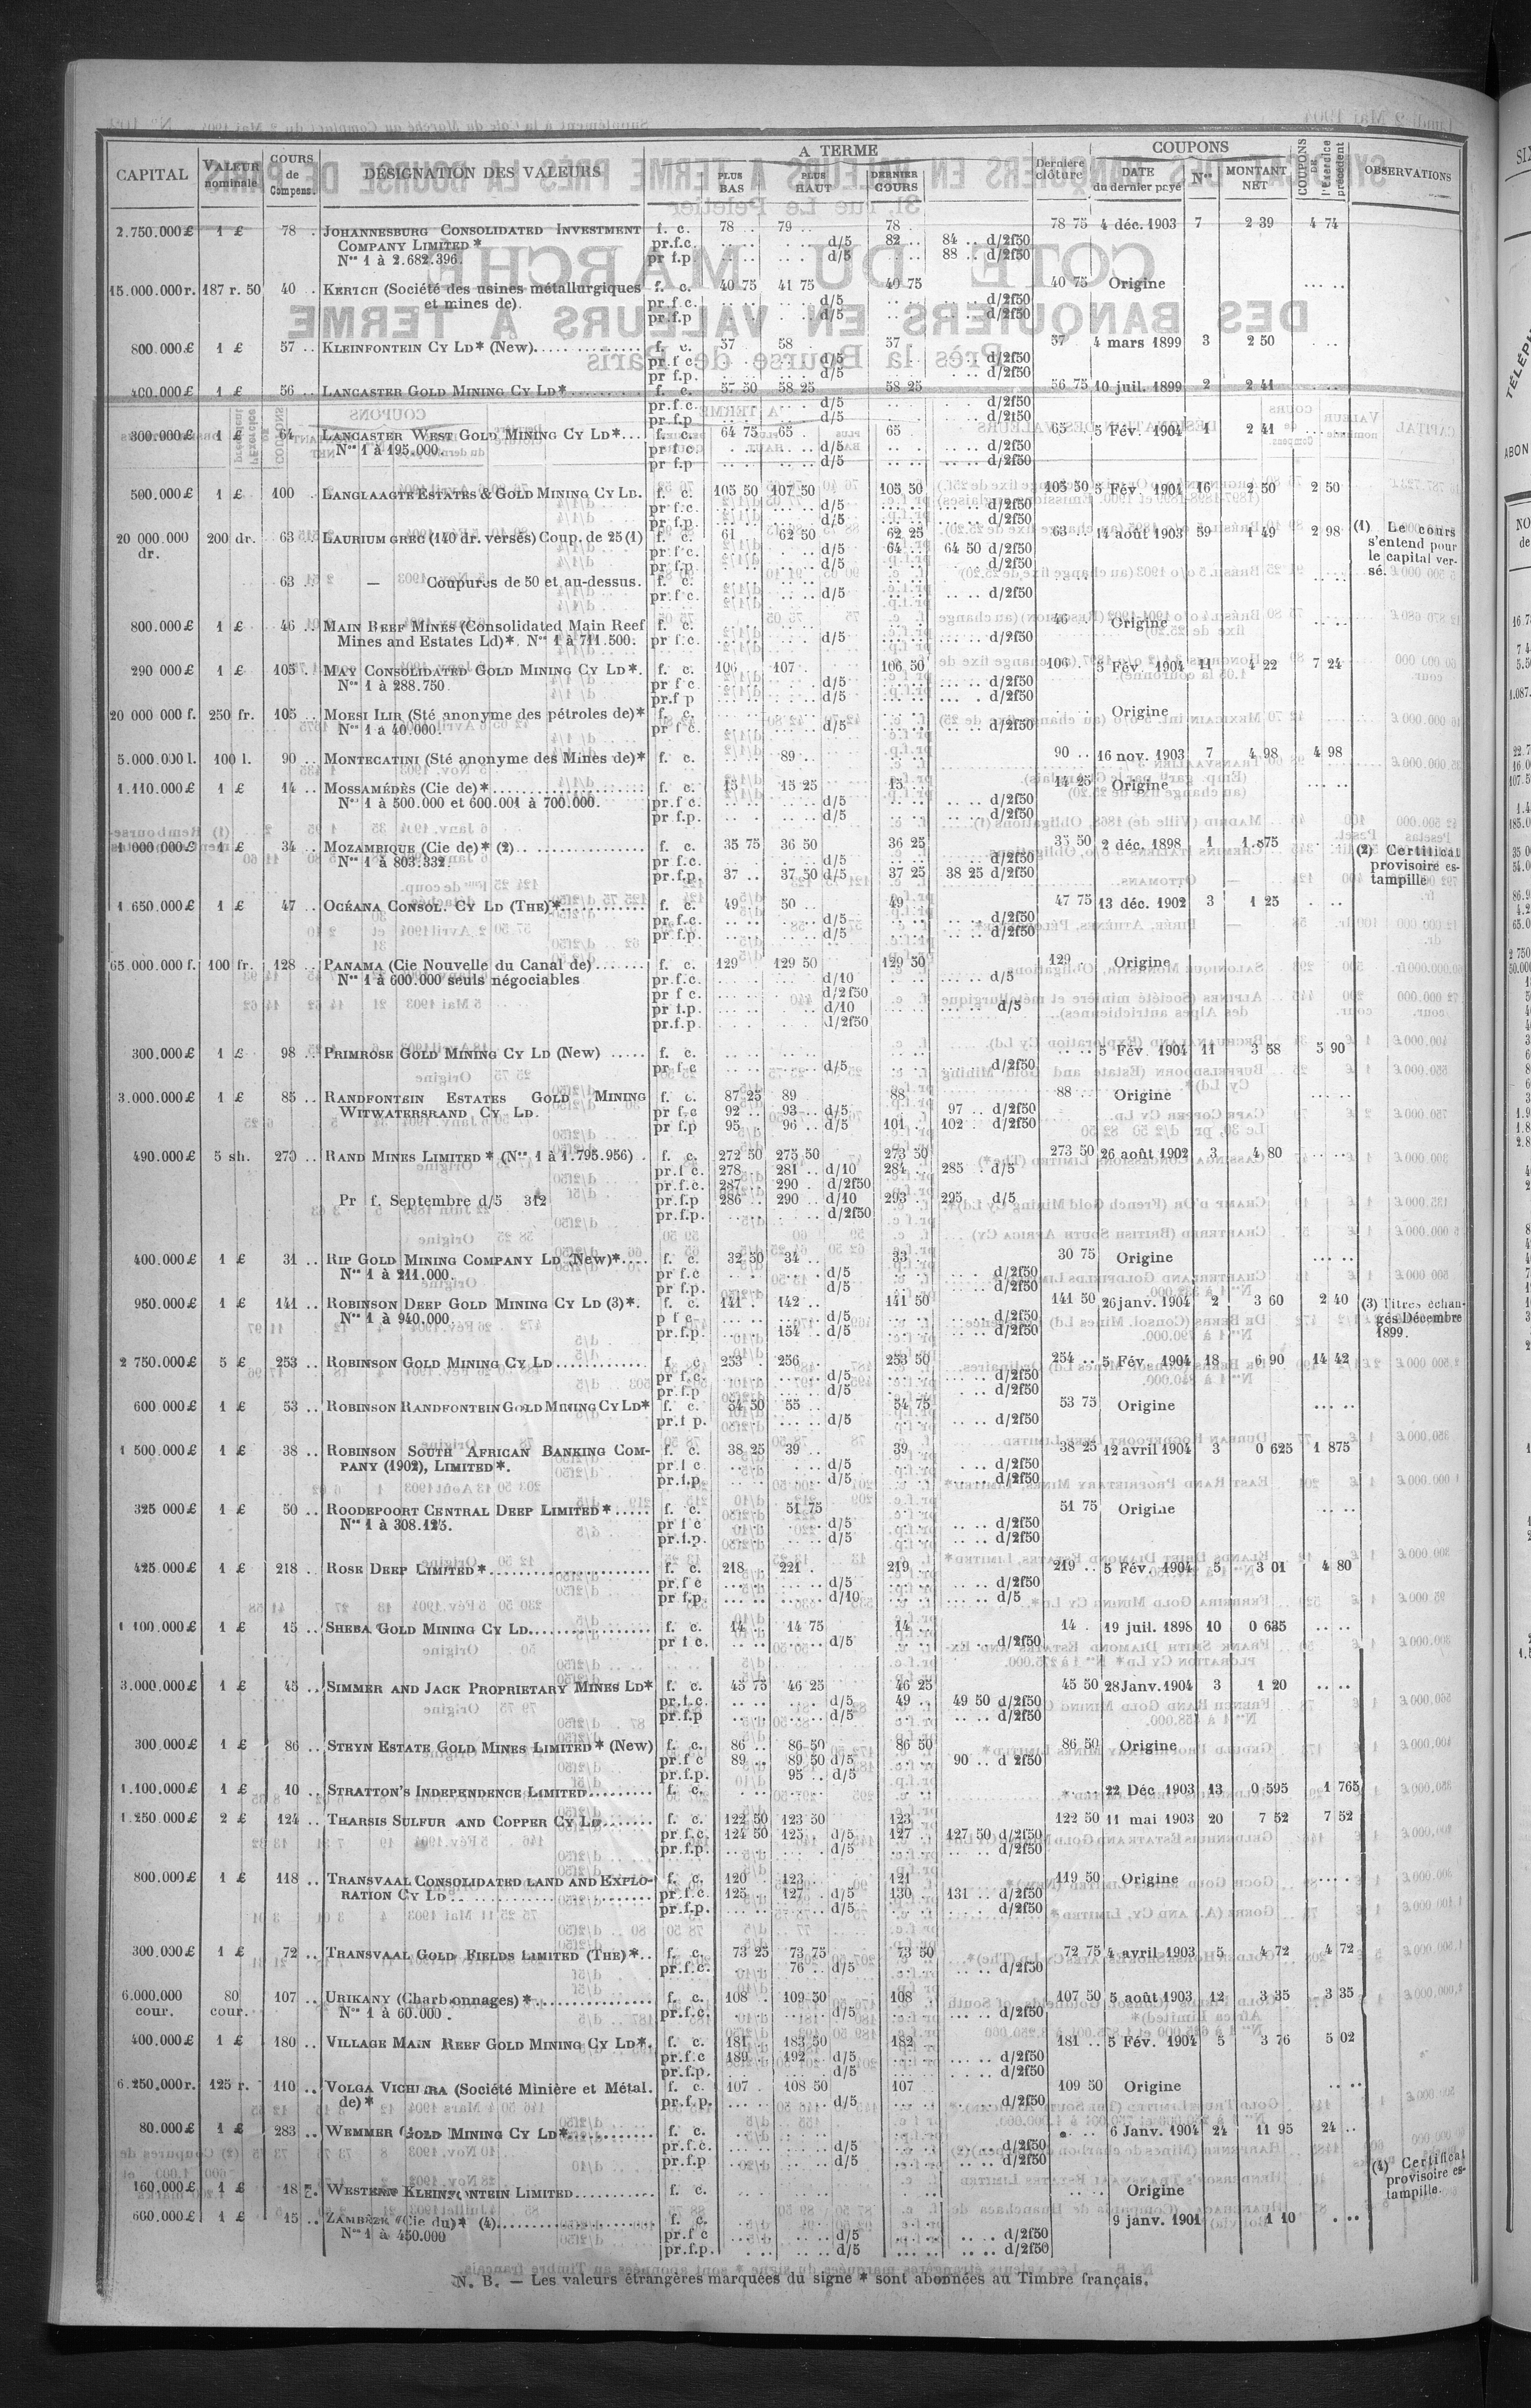 CAPITAL VALEUR nominale COURS de Compens. DÉSIGNATION DES VALEURS A TERME PLUS BAS PLUS HAUT DERNIER COURS Dernière clôture COUPONS DATE du dernier payé Nos MONTANT NET COUPONS DE l'Exercice précédent OBSERVATIONS
2.750.000 £ 1 £ 78 . JOHANNESBURG CONSOLIDATED INVESTMENT f. c. 78 .. 79 .. 78 . 78 75 4 déc. 1903 7 2 39 4 74
COMPANY LIMITED * pr.f.c. d/5 82 .. 84 .. d/2f50
Nos 1 à 2.682.396. pr f.p. d/5 88 .. d/2f50
15.000.000 r. 187 r. 50 40 . KERTCH (Société des usines métallurgiques f. c. 40 75 41 75 40 75 40 75 Origine
et mines de). pr.f c. d/5 d/2f50
pr.f.p d/5 d/2f50
800.000 £ 1 £ 57 .. KLEINFONTEIN CY LD* (New). f. c. 57 58 57 57 4 mars 1899 3 2 50
pr.f c. d/5 d/2f50
pr f.p. d/5 d/2f50
400.000 £ 1 £ 56 .. LANCASTER GOLD MINING CY LD* f. c. 57 50 58 25 58 25 56 75 10 juil. 1899 2 2 41
pr.f c. d/5 d/2f50
pr.f.p d/5 d/2f50
300.000 £ 1 £ 64 LANCASTER WEST GOLD MINING CY LD*... f. c. 64 75 65 . 65 65 5 Fév. 1904 1 2 41
Nos 1 à 195.000. pr f c. d/5 d/2f50
pr f.p d/5 d/2f50
500.000 £ 1 £ 100 LANGLAAGTE ESTATES & GOLD MINING CY LD. f. c. 105 50 107 50 105 50 105 50 5 Fév. 1904 16 2 50 2 50
pr.f c. d/5 d/2f50
pr.f.p. d/5 d/2f50
20 000.000 dr. 200 dr. 63 LAURIUM GREC (140 dr. versés) Coup. de 25 (1) f. c. 61 62 50 62 25 63 .. 14 août 1903 59 1 49 2 98 (1) Le cours s'entend pour le capital versé.
pr f c. d/5 64 .. 64 50 d/2f50
pr f.p d/5 d/2f50
63 — Coupures de 50 et au-dessus. f. c.
pr.f c. d/5 d/2f50
800.000 £ 1 £ 46 .. MAIN REEF MINES (Consolidated Main Reef f. c. 46 Origine
Mines and Estates Ld)*. Nos 1 à 711.500. pr f.c. d/5 d/2f50
290 000 £ 1 £ 105 . MAY CONSOLIDATED GOLD MINING CY LD*. f. c. 106 107 106 50 106 5 Fév. 1904 11 4 22 7 24
Nos 1 à 288.750. pr f c d/5 d/2f50
pr.f p d/5 d/2f50
20 000 000 f. 250 fr. 105 .. MOESI ILIR (Sté anonyme des pétroles de)* f. c. Origine
Nos 1 à 40.000. pr f c. d/5 d/2f50
5.000.000 l. 100 l. 90 .. MONTECATINI (Sté anonyme des Mines de)* f. c. 89 .. 90 .. 16 nov. 1903 7 4 98 4 98
1.110.000 £ 1 £ 14 .. MOSSAMÉDÈS (Cie de)* f. c. 15 15 25 15 14 25 Origine
Nos 1 à 500.000 et 600.001 à 700.000. pr.f c. d/5 d/2f50
pr f.p. d/5 d/2f50
1 000 000 £ 1 £ 34 .. MOZAMBIQUE (Cie de)* (2) f. c. 35 75 36 50 36 25 35 50 2 déc. 1898 1 1.875 (2) Certificat provisoire estampille
Nos 1 à 803.332. pr f.c. d/5 d/2f50
pr.f.p. 37 .. 37 50 d/5 37 25 38 25 d/2f50
1.650.000 £ 1 £ 47 .. OCÉANA CONSOL. CY LD (THE)* f. c. 49 50 .. 49 47 75 13 déc. 1902 3 1 25
pr.f.c. d/5 d/2f50
pr.f.p. d/5 d/2f50
65.000.000 f. 100 fr. 128 .. PANAMA (Cie Nouvelle du Canal de) f. c. 129 129 50 129 50 129 . Origine
Nos 1 à 600.000 seuls négociables pr.f.c. d/10 d/5
pr f c. d/2f50
pr f.p. d/10 d/5
pr.f.p. d/2f50
300.000 £ 1 £ 98 .. PRIMROSE GOLD MINING CY LD (New) f. c. 5 Fév. 1904 11 3 58 5 90
pr f c d/5 d/2f50
3.000.000 £ 1 £ 85 .. RANDFONTEIN ESTATES GOLD MINING f. c. 87 25 89 88 88 . Origine
WITWATERSRAND CY LD. pr f.c 92 .. 93 .. d/5 97 .. d/2f50
pr f.p 95 .. 96 .. d/5 101 .. 102 .. d/2f50
490.000 £ 5 sh. 270 .. RAND MINES LIMITED * (Nos 1 à 1.795.956) . f. c. 272 50 275 50 273 50 273 50 26 août 1902 3 4 80
pr.f c. 278 .. 281 .. d/10 284 .. 285 .. d/5
pr.f.c. 287 .. 290 . d/2f50
Pr f. Septembre d/5 312 pr f.p 286 .. 290 .. d/10 293 .. 295 d/5
pr.f.p. d/2f50
400.000 £ 1 £ 31 .. RIP GOLD MINING COMPANY LD (New)*.... f. c. 32 50 34 .. 33 30 75 Origine
Nos 1 à 211.000. pr f.c d/5 d/2f50
pr f.p. d/5 d/2f50
950.000 £ 1 £ 141 .. ROBINSON DEEP GOLD MINING CY LD (3)*. f. c. 141 . 142 .. 141 50 141 50 26 janv. 1904 2 3 60 2 40 (3) Titres échangés Décembre 1899.
Nos 1 à 940.000. p f c. d/5 d/2f50
pr.f.p. 154 .. d/5 d/2f50
2 750.000 £ 5 £ 253 .. ROBINSON GOLD MINING CY LD f c 253 . 256 . 253 50 254 .. 5 Fév. 1904 18 6 90 14 42
pr f.c. d/5 d/2f50
pr f.p d/5 d/2f50
600 000 £ 1 £ 53 .. ROBINSON RANDFONTEIN GOLD MINING CY LD* f. c. 54 50 55 .. 54 75 53 75 Origine
pr.f p. d/5 d/2f50
1 500.000 £ 1 £ 38 .. ROBINSON SOUTH AFRICAN BANKING COM- f. c. 38 25 39 .. 39 38 25 12 avril 1904 3 0 625 1 875
PANY (1902), LIMITED*. pr.f c d/5 d/2f50
pr.f.p d/5 d/2f50
325 000 £ 1 £ 50 .. ROODEPOORT CENTRAL DEEP LIMITED* f. c. 51 75 51 75 Origine
Nos 1 à 308.125. pr f c d/5 d/2f50
pr.f.p. d/5 d/2f50
425.000 £ 1 £ 218 . ROSE DEEP LIMITED* f. c. 218 221 . 219 219 .. 5 Fév. 1904 5 3 01 4 80
pr.f c d/5 d/2f50
pr f.p. d/10 d/5
1 100.000 £ 1 £ 15 .. SHEBA GOLD MINING CY LD f. c. 14 14 75 14 14 . 19 juil. 1898 10 0 635
pr f c. d/5 d/2f50
3.000.000 £ 1 £ 45 .. SIMMER AND JACK PROPRIETARY MINES LD* f. c. 45 75 46 25 46 25 45 50 28 Janv. 1904 3 1 20
pr.f.c. d/5 49 .. 49 50 d/2f50
pr.f.p d/5 d/2f50
300.000 £ 1 £ 86 .. STEYN ESTATE GOLD MINES LIMITED* (New) f. c. 86 .. 86 50 86 50 86 50 Origine
pr.f c 89 .. 89 50 d/5 90 .. d 2f50
pr.f.p. 95 .. d/5
1.100.000 £ 1 £ 10 .. STRATTON'S INDEPENDENCE LIMITED f. c. 22 Déc. 1903 13 0 595 1 765
1.250.000 £ 2 £ 124 .. THARSIS SULFUR AND COPPER CY LD f. c. 122 50 123 50 123 122 50 11 mai 1903 20 7 52 7 52
pr f.c. 124 50 125 . d/5 127 .. 127 50 d/2f50
pr.f.p. d/5 d/2f50
800.000 £ 1 £ 118 .. TRANSVAAL CONSOLIDATED LAND AND EXPLO- f. c. 120 123 121 119 50 Origine
RATION CY LD pr.f.c. 125 127 . d/5 130 131 .. d/2f50
pr.f.p. d/5 d/2f50
300.000 £ 1 £ 72 .. TRANSVAAL GOLD FIELDS LIMITED (THE)*.. f. c. 73 25 73 75 73 50 72 75 4 avril 1903 5 4 72 4 72
pr.f.c. 76 .. d/5 d/2f50
6.000.000 cour. 80 cour. 107 .. URIKANY (Charbonnages)* f. c. 108 109 50 108 107 50 5 août 1903 12 3 35 3 35
Nos 1 à 60.000. pr.f.c. d/5 d/2f50
400.000 £ 1 £ 180 .. VILLAGE MAIN REEF GOLD MINING CY LD*. f. c. 181 183 50 182 181 .. 5 Fév. 1904 5 3 76 5 02
pr.f c 189 .. 192 .. d/5 d/2f50
pr.f.p. d/2f50
6.250.000 r. 125 r. 110 .. VOLGA VICHERA (Société Minière et Métal. f. c. 107 . 108 50 107 109 50 Origine
de)* pr.f.p. d/5 d/2f50
80.000 £ 1 £ 283 .. WEMMER GOLD MINING CY LD* f. c. 6 Janv. 1904 24 11 95 24 ..
pr.f.c. d/5 d/2f50
pr.f.p d/5 d/2f50
160.000 £ 1 £ 18 WESTERN KLEINFONTEIN LIMITED f. c. Origine (4) Certificat provisoire estampille.
600.000 £ 1 £ 15 .. ZAMBÈZE (Cie du)* (4) f. c. 9 janv. 1901 1 10
Nos 1 à 450.000 pr.f c d/5 d/2f50
pr.f.p. d/5 d/2f50
N. B. — Les valeurs étrangères marquées du signe * sont abonnées au Timbre français.